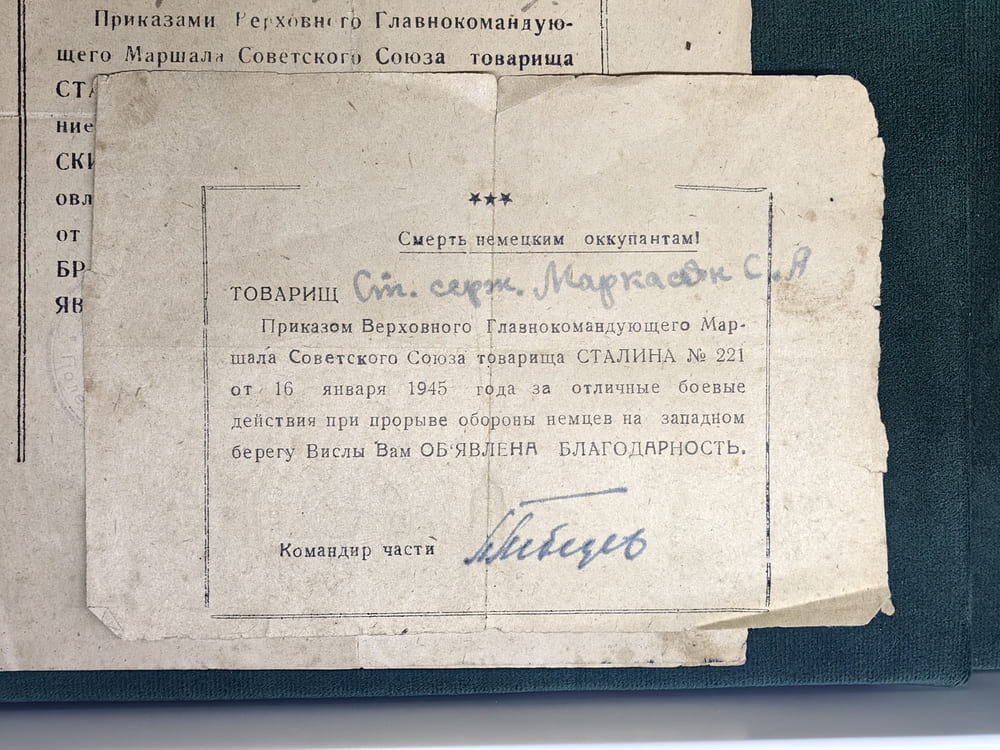 Приказами Верховного Главнокомандую-
щего Маршала Советского Союза товарища
СТА
ние
СКИ
овл
от
БР
ЯВ
★★★
Смерть немецким оккупантам!
ТОВАРИЩ Ст. серж. Маркасян С. А
Приказом Верховного Главнокомандующего Мар-
шала Советского Союза товарища СТАЛИНА № 221
от 16 января 1945 года за отличные боевые
действия при прорыве обороны немцев на западном
берегу Вислы Вам ОБ'ЯВЛЕНА БЛАГОДАРНОСТЬ.
Командир части